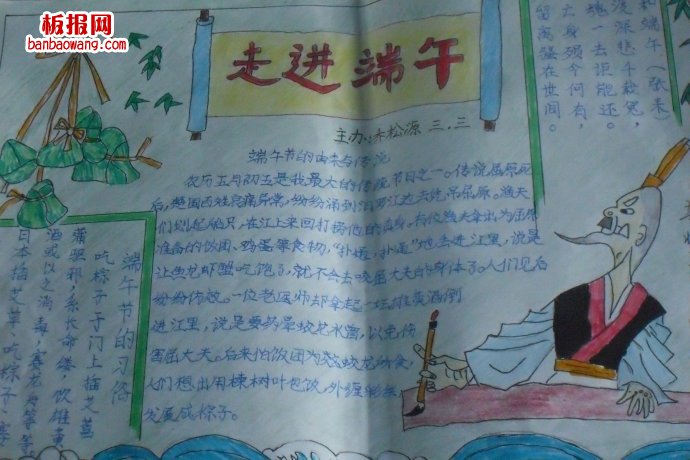 板报网
banbaowang.com
走进端午
主办：朱松源 三.三
端午节的由来与传说
农历五月初五是我最大的传统节日之一。传说屈原死
后，楚国百姓哀痛异常，纷纷涌到汨罗江边去凭吊屈原。渔夫
们划起船只，在江上来回打捞他的真身。有位渔夫拿出为屈原
准备的饭团、鸡蛋等食物，“扑通、扑通”地丢进江里，说是
让鱼龙虾蟹吃饱了，就不会去咬屈大夫的身体了。人们见后
纷纷仿效。一位老医师却拿起一坛雄黄酒倒
进江里，说是要药晕蛟龙水兽，以免伤
害屈大夫。后来怕饭团为蛟龙所食，
人们想出用楝树叶包饭，外缠彩丝，
发展成粽子。
端午节的习俗
吃粽子于门上插艾
蒲驱邪，系长命缕，饮雄黄
酒或以之消毒，赛龙舟等等。
日本插艾草、吃粽子、赛
和端午（张耒）
竞渡深悲千载冤，
魂一去讵能还。
亡身殒今何有，
留离骚在世间。